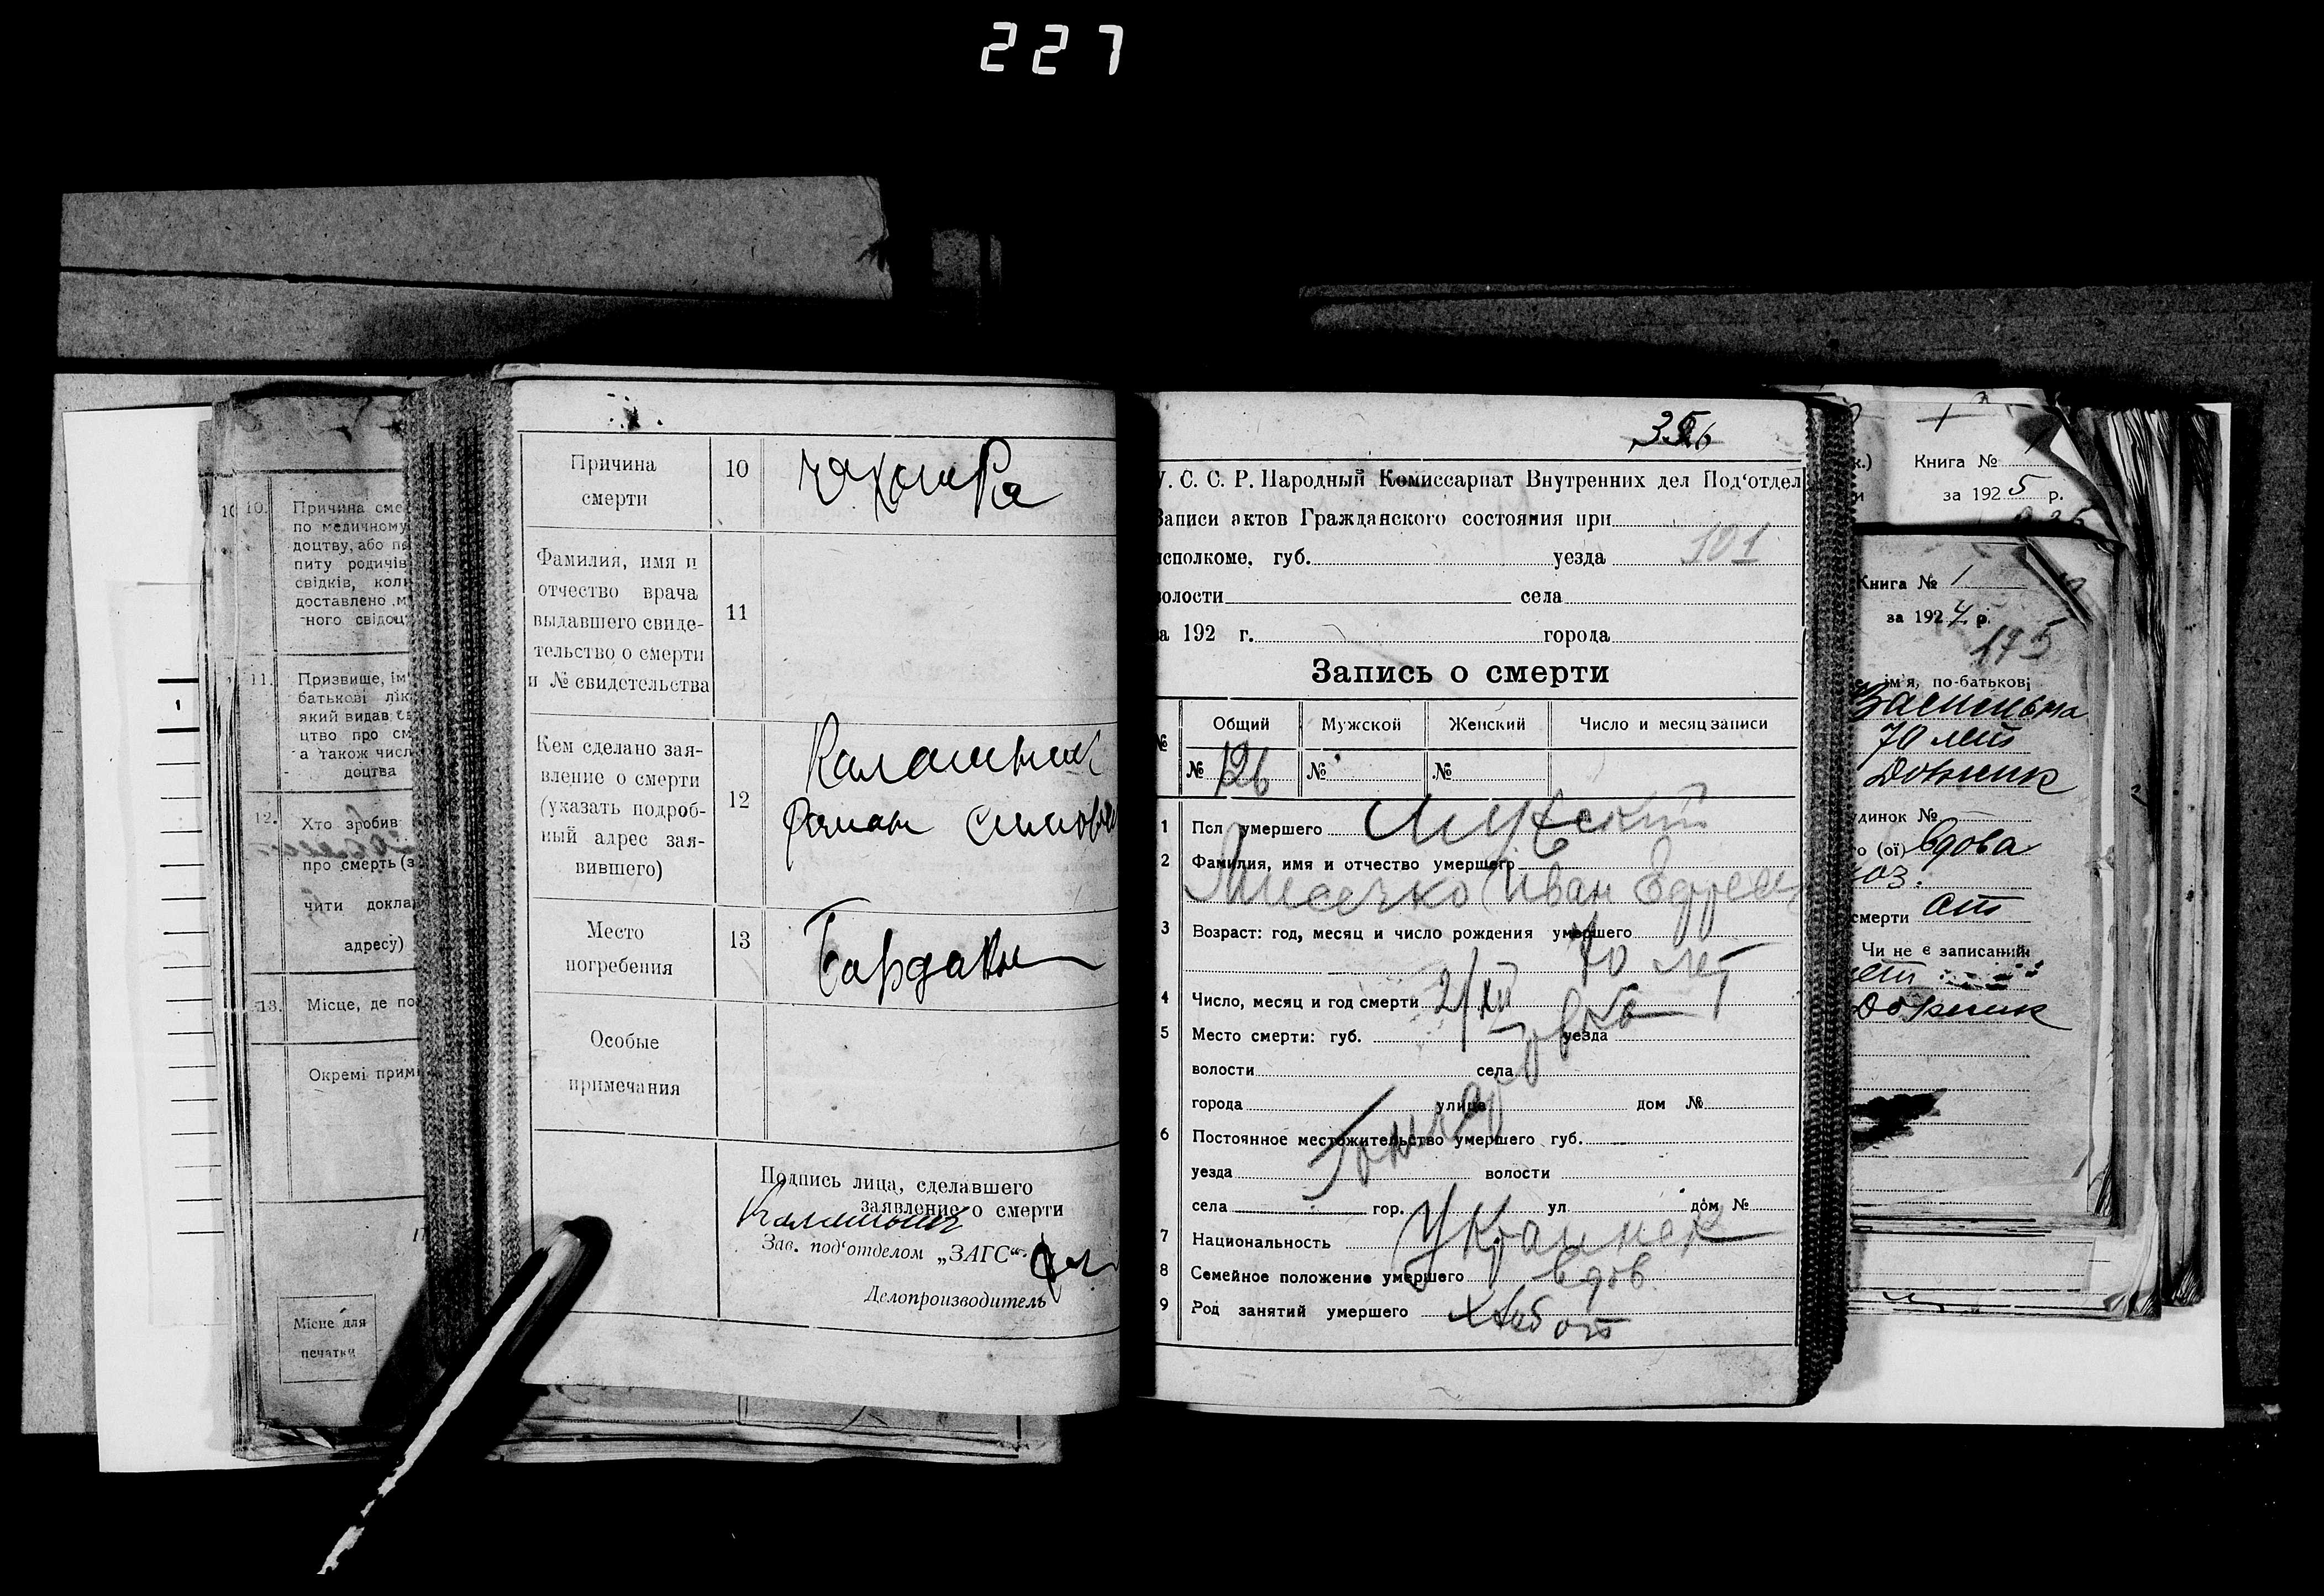 227
10.
Причина сме
по медичному
доцтву, або по
питу родичів
свідків, коли
доставлено м
ного свідоц
11.
Призвище, ім'
батькові лік
який видав с
цтво про см
а також числ
доцтва
12.
Хто зробив
про смерть (з
чити докла
адресу)
13.
Місце, де по
Окремі прим
Місце для
печатки
Причина
смерти
10
чахотка
Фамилия, имя и
отчество врача
выдавшего свиде-
тельство о смерти
и № свидетельства
11
Кем сделано зая-
вление о смерти
(указать подроб-
ный адрес зая-
вившего)
12
Калашник
Роман
Место
погребения
13
Бардаки
Особые
примечания
Подпись лица, сделавшего
заявление о смерти
Калашник
Зав. под'отделом „ЗАГС“
Делопроизводитель
У. С. С. Р. Народный Комиссариат Внутренних дел Под'отдел
Записи актов Гражданского состояния при
101
исполкоме, губ. уезда
волости села
а 192 г. города
Запись о смерти
№ Общий Мужской Женский Число и месяц записи
№ 126 № №
1 Пол умершего Мужский
2 Фамилия, имя и отчество умершего
Иван Ефрем
3 Возраст: год, месяц и число рождения умершего
70 лет
4 Число, месяц и год смерти 2/XII
5 Место смерти: губ. уезда
волости села
города улица дом №
6 Постоянное местожительство умершего губ.
уезда волости
села гор. ул. дом №
7 Национальность Украинец
8 Семейное положение умершего вдов
9 Род занятий умершего хлебоп
Книга № 1
за 1925 р.
Книга № 1
за 1924 р.
175
ім'я, по-батькові
70 лет
удинок №
о (ої) вдова
смерти
Чи не є записаний